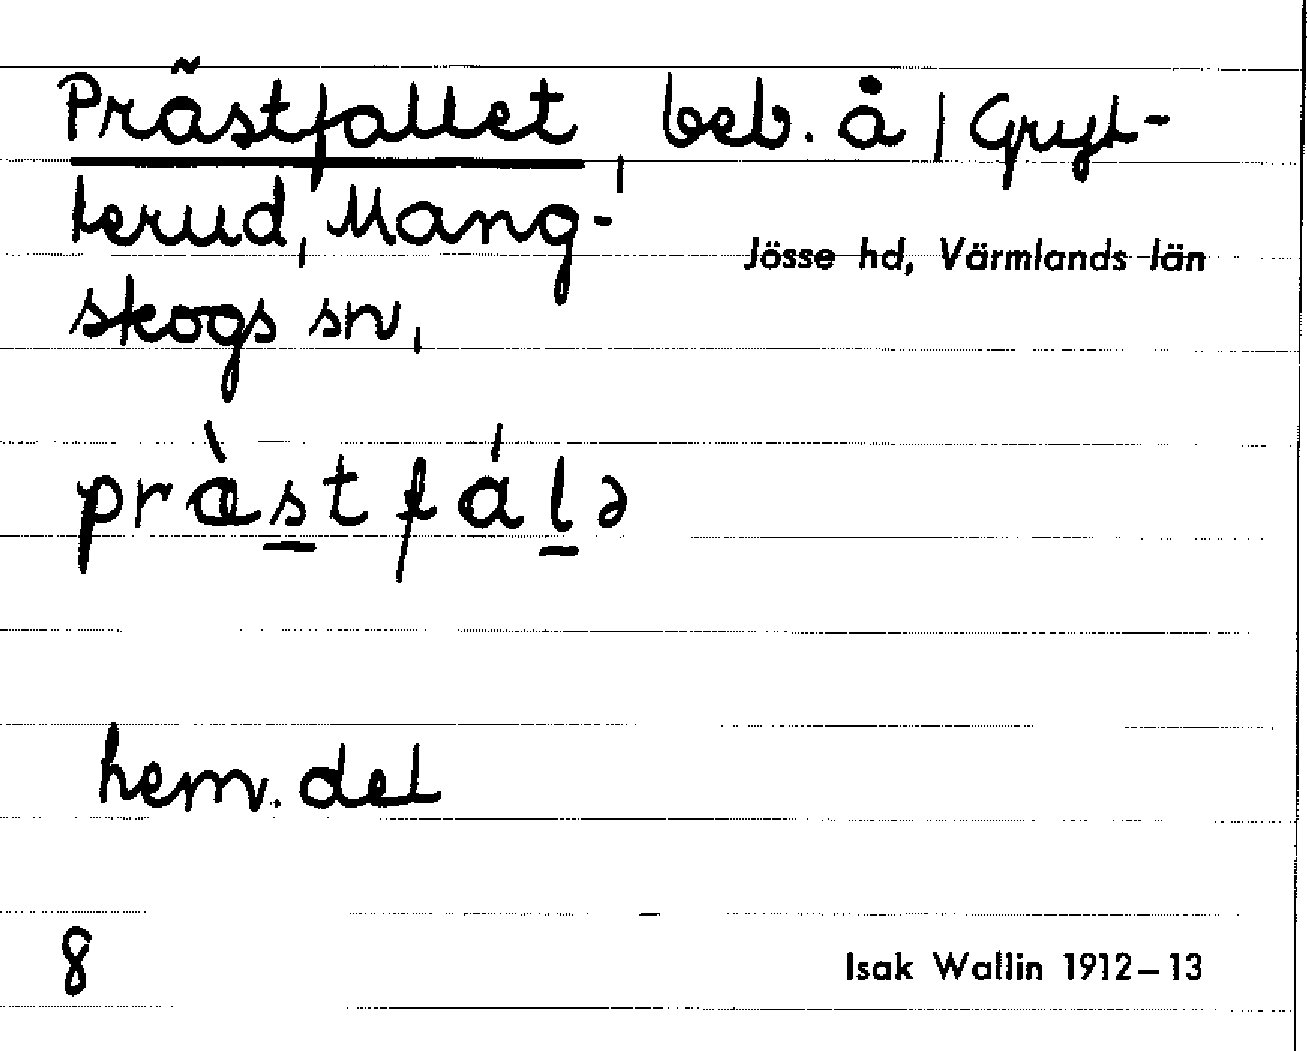 Prästfallet, beb. å 1 Gryt-
terud, Mang-
Jösse hd, Värmlands län
skogs sn,
præ̀stfálə
hem. del
8
Isak Wallin 1912–13